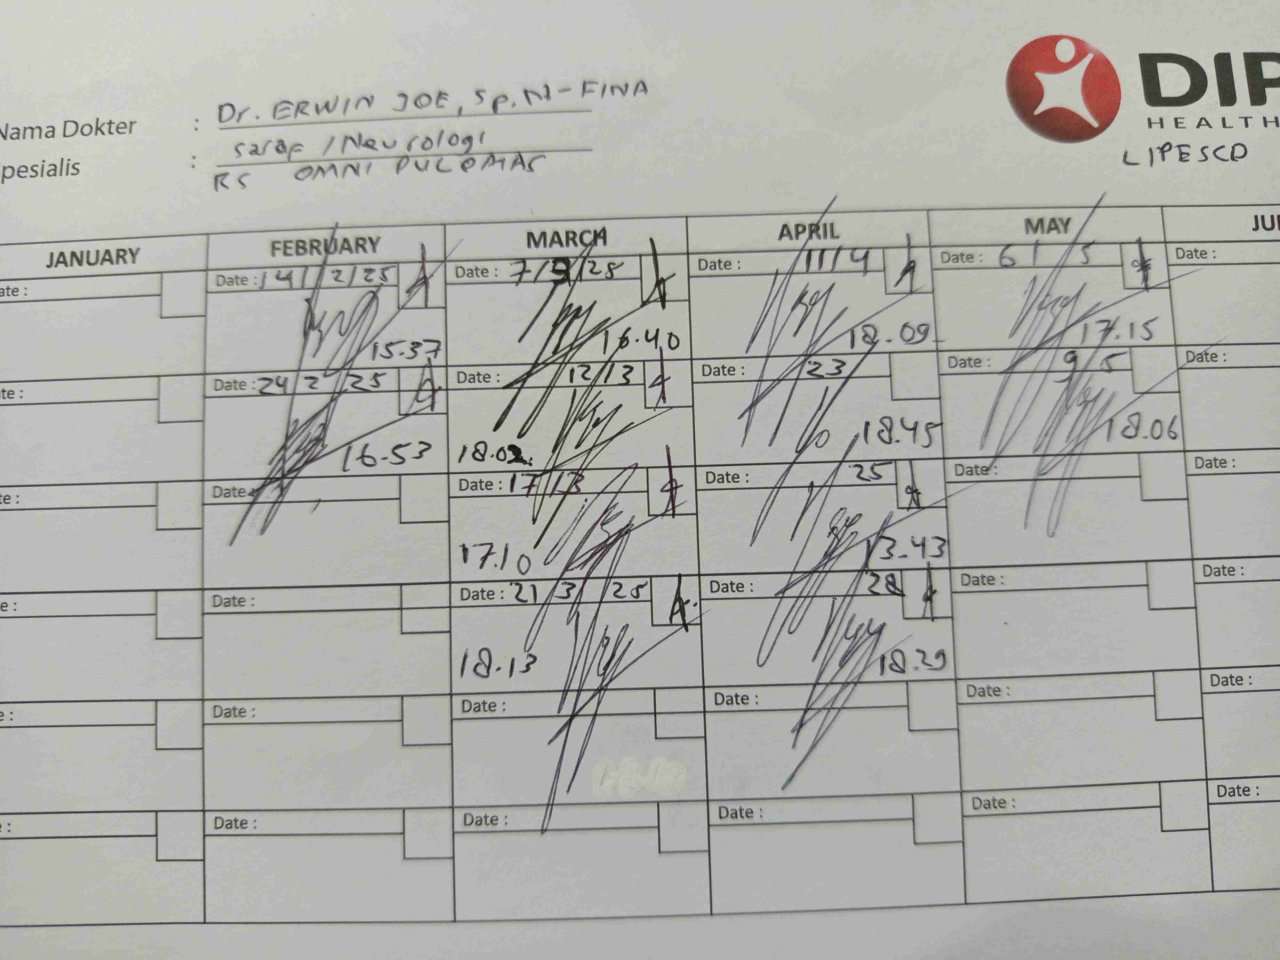 Dr. ERWIN JOE, Sp.N - FINA
Nama Dokter :
saraf / Neurologi
pesialis :
RS OMNI PULOMAS
DIP
HEALTH
LIPESCO
JANUARY FEBRUARY MARCH APRIL MAY JU
ate: Date: 14/2/25 Date: 7/3/25 Date: 11/4 Date: 6/5 Date:
15.37 16.40 18.09 17.15
te: Date: 24/2/25 Date: 12/3 Date: 23 9 5 Date:
16.53 18.02 18.45 18.06
te: Date Date: 17/3 Date: 25 Date: Date:
17.10 13.43
e: Date: Date: 21/3/25 Date: 28 Date: Date:
18.13 18.29
e: Date: Date: Date: Date: Date:
: Date: Date: Date: Date: Date: